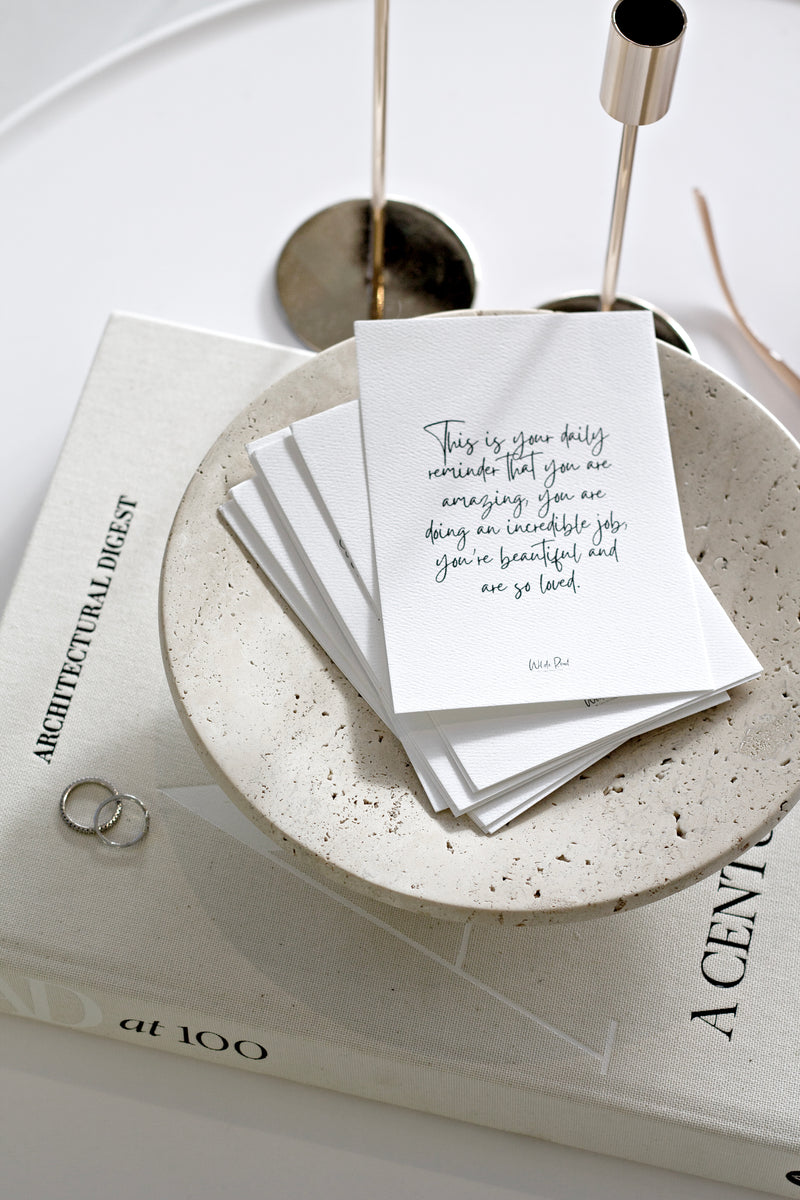 This is your daily
reminder that you are
amazing, you are
doing an incredible job,
you're beautiful and
are so loved.
ARCHITECTURAL DIGEST
A CENTU
AD at 100